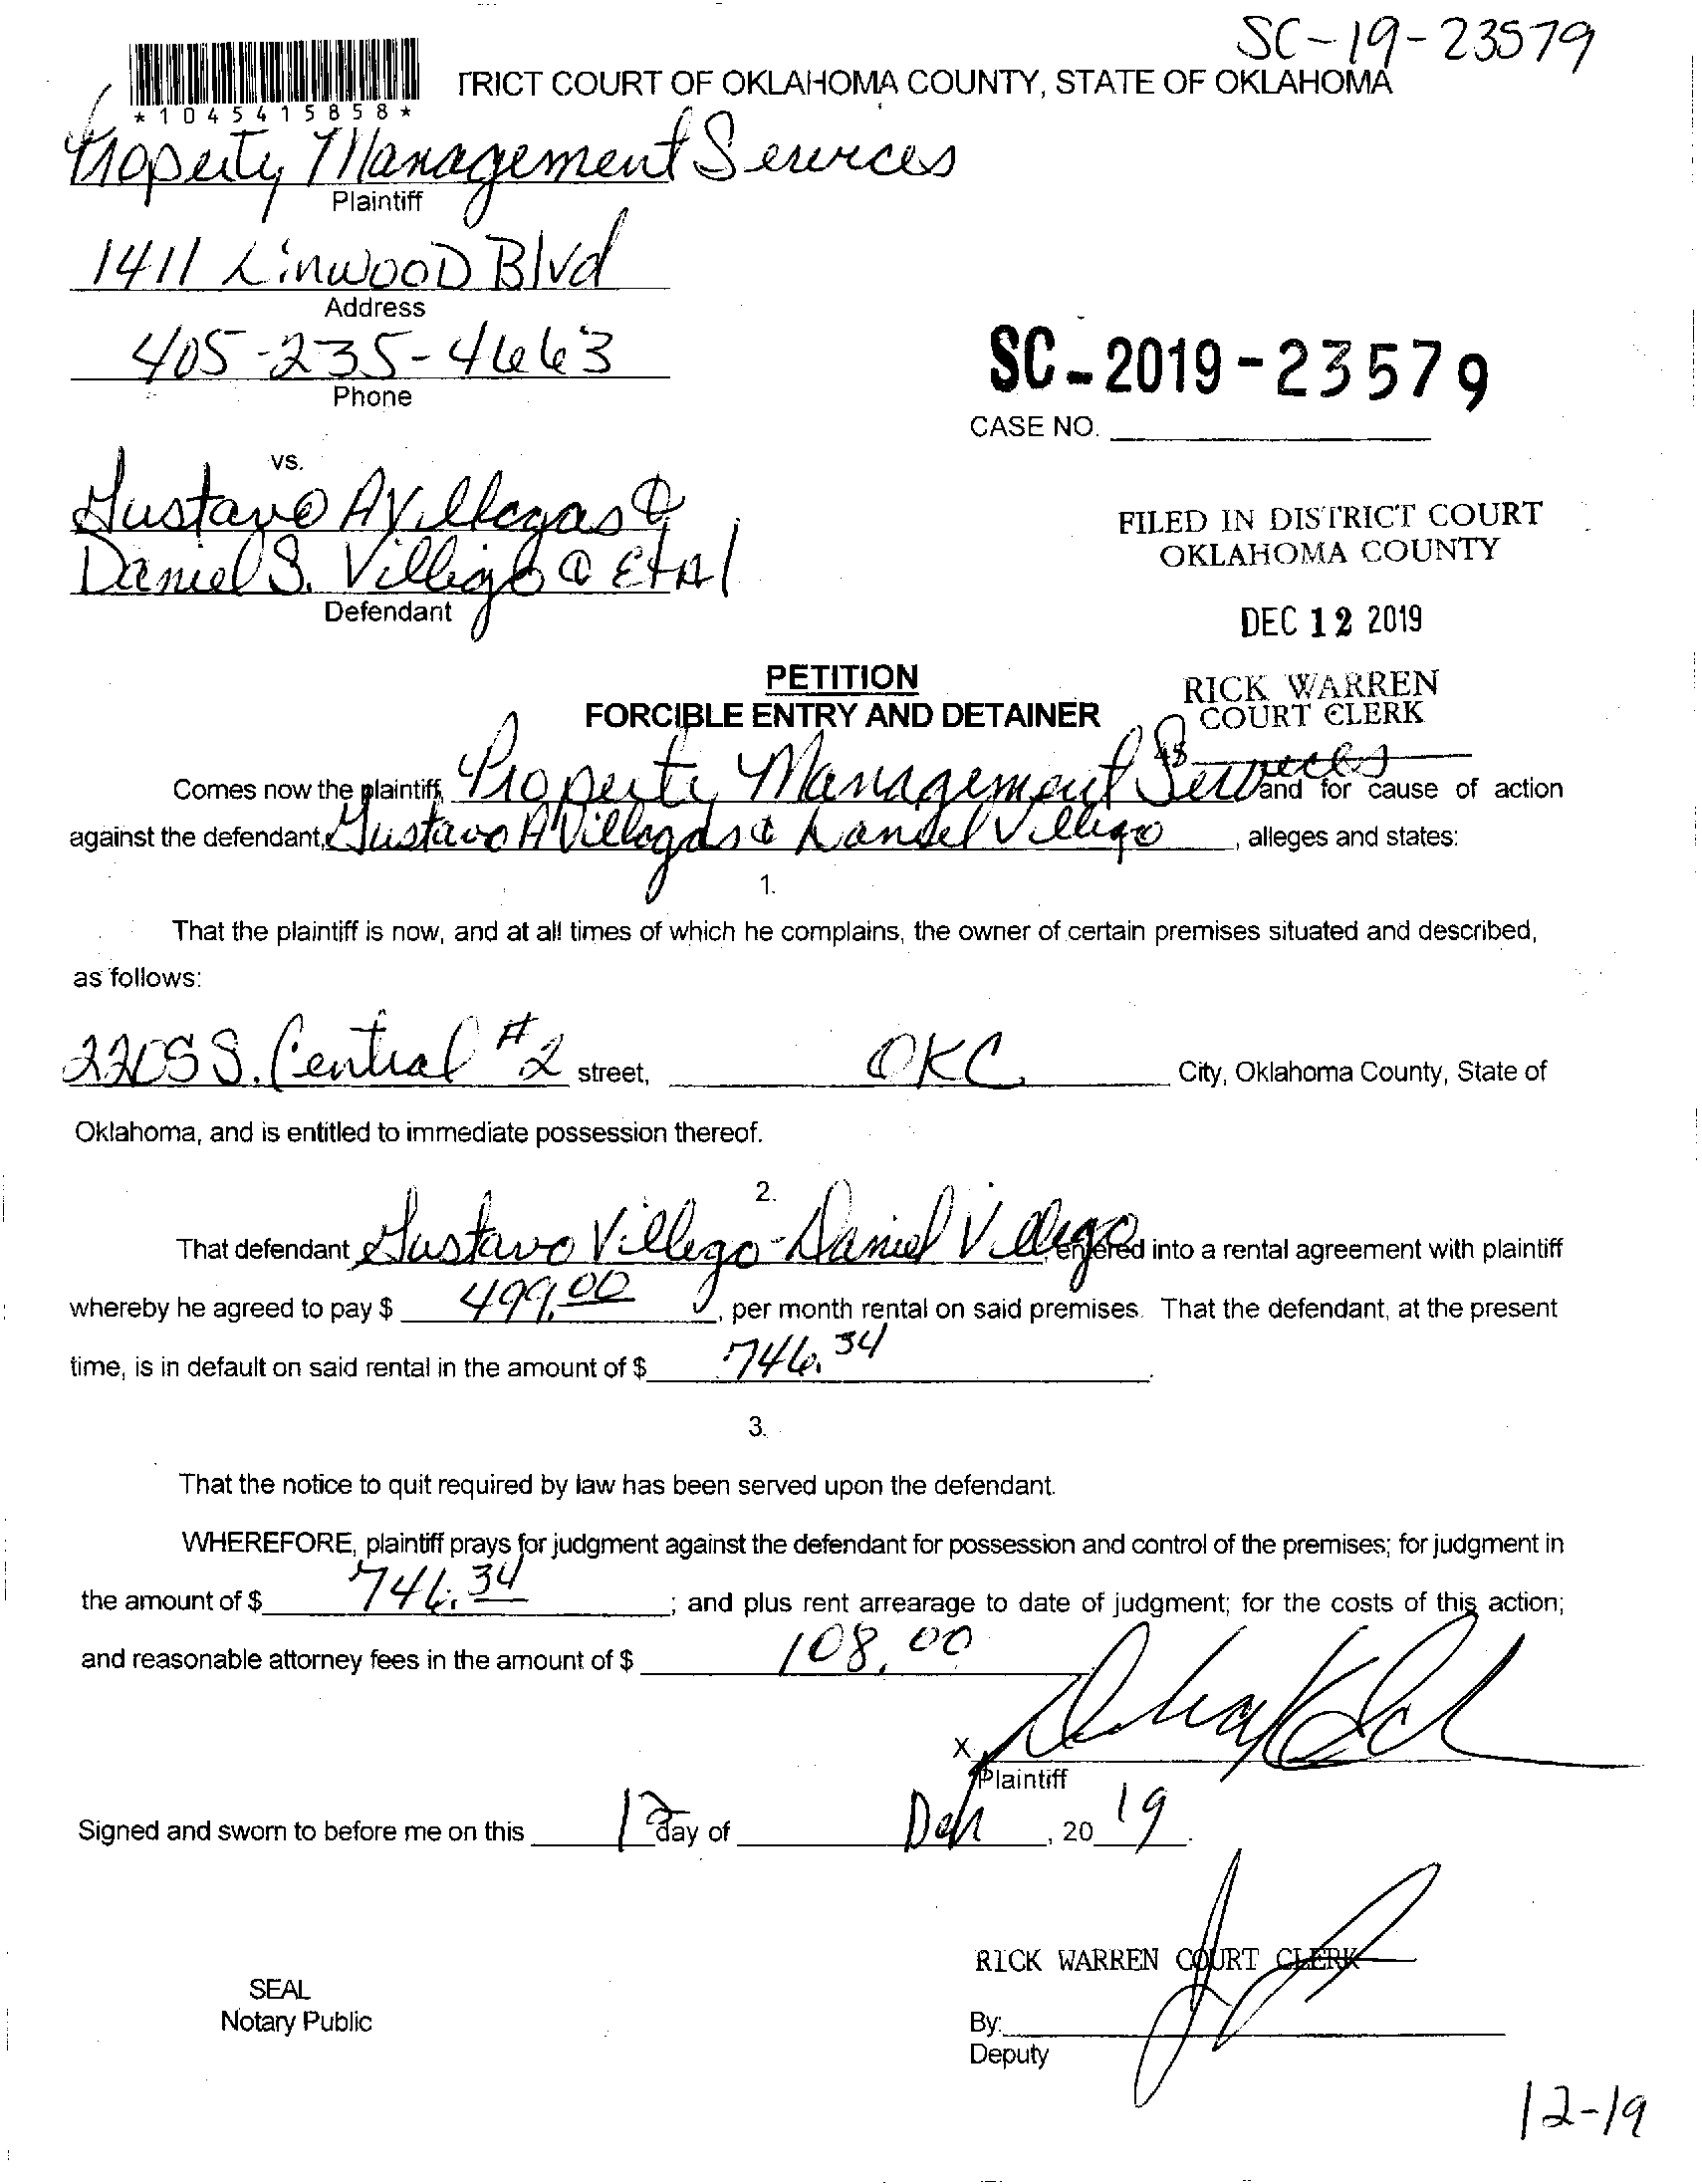 SC-19-23579
TRICT COURT OF OKLAHOMA COUNTY, STATE OF OKLAHOMA
*1045415858*
Property Management Services
Plaintiff
1411 Linwood Blvd
Address
405-235-4663
Phone
SC-2019-23579
CASE NO.
vs.
Gustavo A Villegas &
Daniel S. Villigo & EtAl
Defendant
FILED IN DISTRICT COURT
OKLAHOMA COUNTY
DEC 12 2019
RICK WARREN
COURT CLERK
PETITION
FORCIBLE ENTRY AND DETAINER
Comes now the plaintiff, Property Management Services and for cause of action
against the defendant, Gustavo A Villegas & Daniel Villigo, alleges and states:
1.
That the plaintiff is now, and at all times of which he complains, the owner of certain premises situated and described,
as follows:
2205 S. Central #2 street, OKC City, Oklahoma County, State of
Oklahoma, and is entitled to immediate possession thereof.
2.
That defendant Gustavo Villego - Daniel Villego, entered into a rental agreement with plaintiff
whereby he agreed to pay $ 499.00, per month rental on said premises. That the defendant, at the present
time, is in default on said rental in the amount of $ 746.34.
3.
That the notice to quit required by law has been served upon the defendant.
WHEREFORE, plaintiff prays for judgment against the defendant for possession and control of the premises; for judgment in
the amount of $ 746.34; and plus rent arrearage to date of judgment; for the costs of this action;
and reasonable attorney fees in the amount of $ 108.00
X
Plaintiff
Signed and sworn to before me on this 12 day of , 20 19.
RICK WARREN COURT CLERK
SEAL
Notary Public
By:
Deputy
12-19